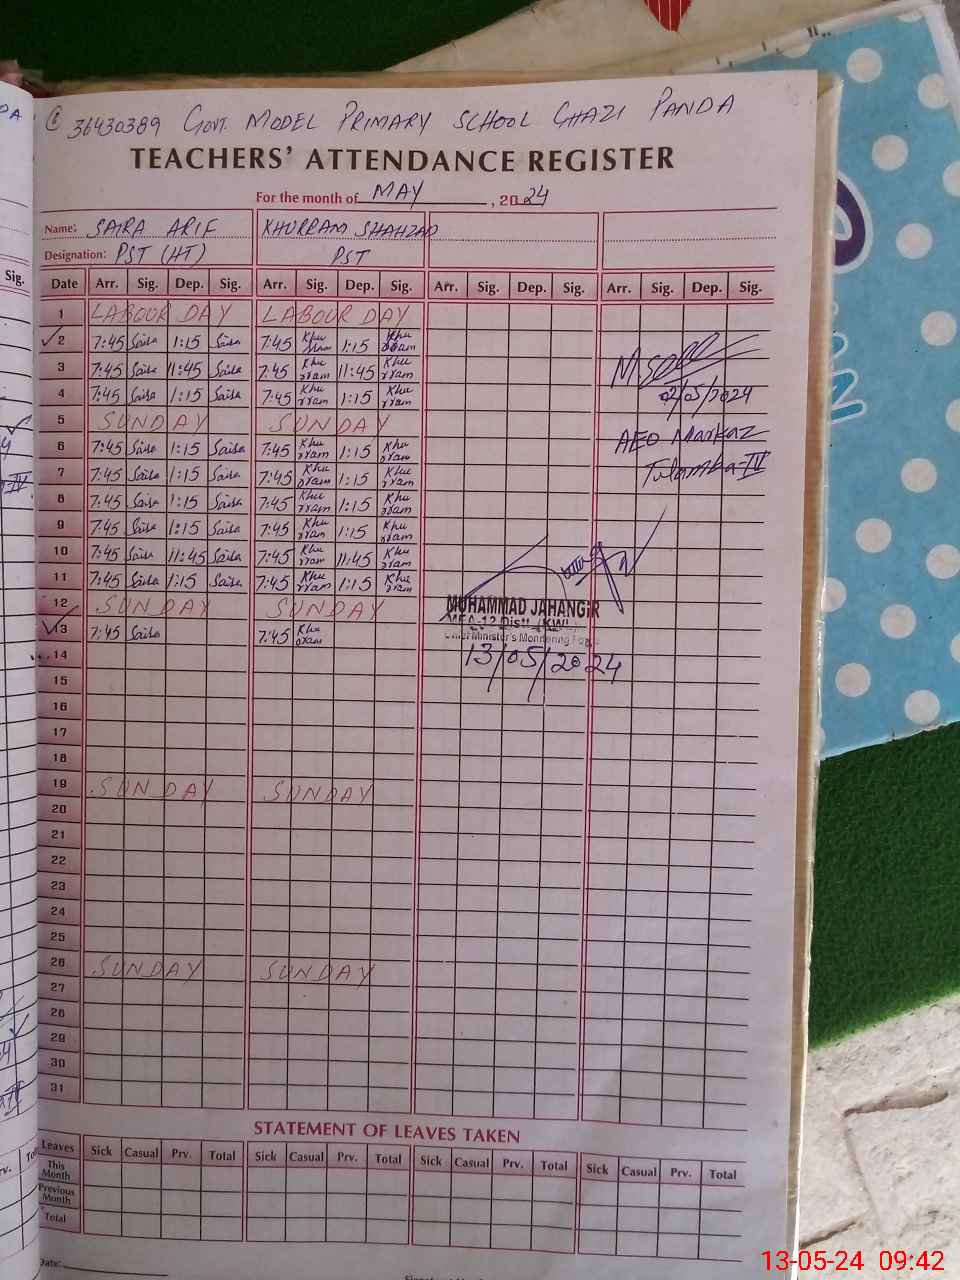 36430389 GOVT. MODEL PRIMARY SCHOOL GHAZI PANDA
TEACHERS' ATTENDANCE REGISTER
For the month of MAY, 2024
Name: SAIRA ARIF KHURRAM SHAHZAD
Designation: PST (HT) PST
Sig.
Date Arr. Sig. Dep. Sig. Arr. Sig. Dep. Sig. Arr. Sig. Dep. Sig. Arr. Sig. Dep. Sig.
1 LABOUR DAY LABOUR DAY
2 7:45 Saira 1:15 Saira 7:45 Khurram 1:15 Khurram
3 7:45 Saira 11:45 Saira 7:45 Khurram 11:45 Khurram
4 7:45 Saira 1:15 Saira 7:45 Khurram 1:15 Khurram
02/05/2024
5 SUNDAY SUNDAY
AEO Markaz
6 7:45 Saira 1:15 Saira 7:45 Khurram 1:15 Khurram
Tulamba-IV
7 7:45 Saira 1:15 Saira 7:45 Khurram 1:15 Khurram
8 7:45 Saira 1:15 Saira 7:45 Khurram 1:15 Khurram
9 7:45 Saira 1:15 Saira 7:45 Khurram 1:15 Khurram
10 7:45 Saira 11:45 Saira 7:45 Khurram 11:45 Khurram
11 7:45 Saira 1:15 Saira 7:45 Khurram 1:15 Khurram
12 SUNDAY SUNDAY
MUHAMMAD JAHANGIR
MEA-12 Distt. (KWL)
Chief Minister's Monitoring Force
13 7:45 Saira 7:45 Khurram
13/05/2024
14
15
16
17
18
19 SUNDAY SUNDAY
20
21
22
23
24
25
26 SUNDAY SUNDAY
27
28
29
30
31
STATEMENT OF LEAVES TAKEN
Leaves Sick Casual Prv. Total Sick Casual Prv. Total Sick Casual Prv. Total Sick Casual Prv. Total
This Month
Previous Month
Total
Date:
13-05-24 09:42